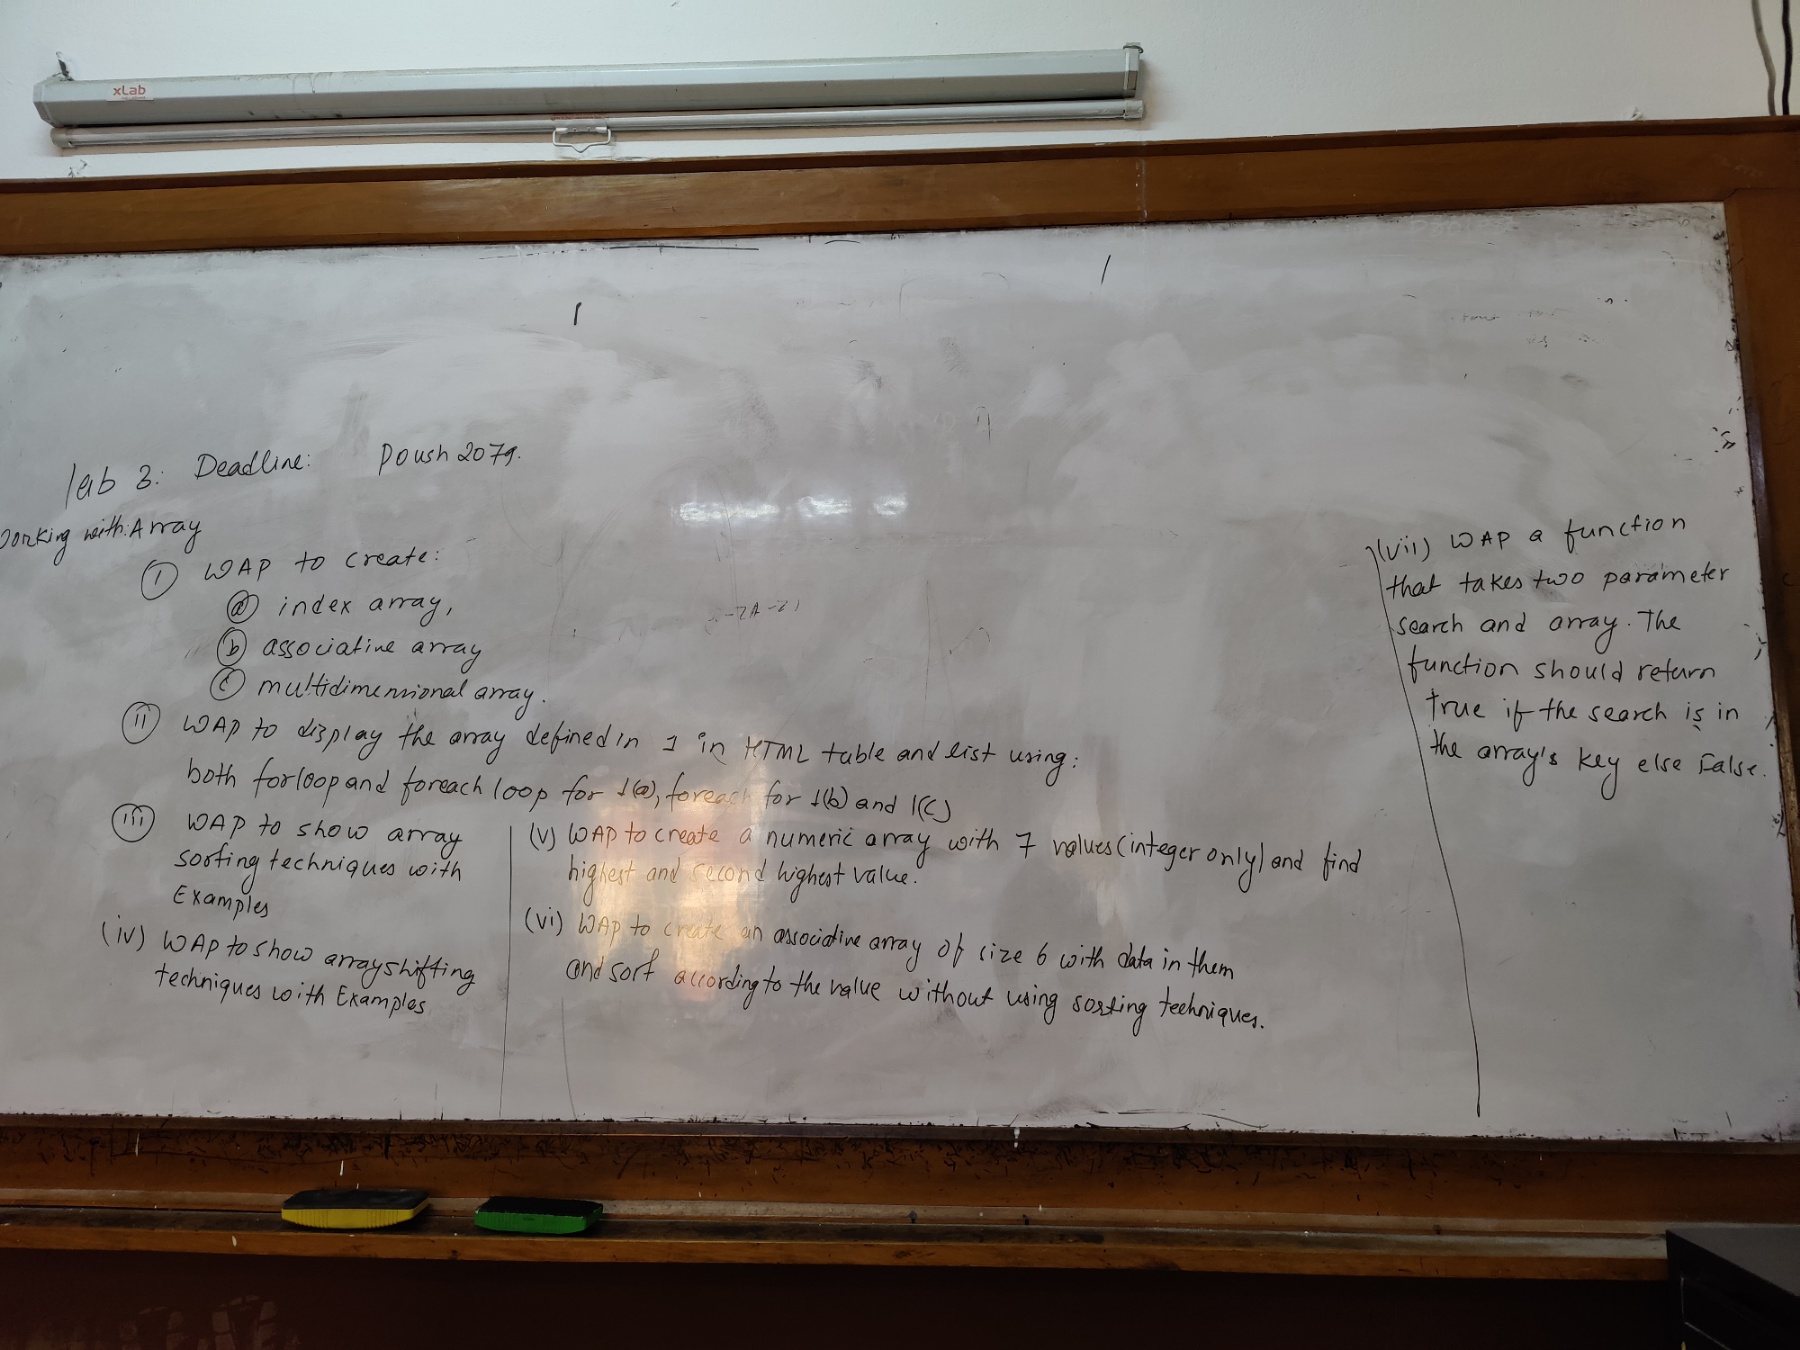 xLab
lab 3: Deadline: Poush 2079.
Working with Array
(i) WAP to create:
(a) index array,
(b) associative array
(c) multidimensional array.
(ii) WAP to display the array defined in 1 in HTML table and list using:
both forloop and foreach loop for 1(a), foreach for 1(b) and 1(c)
(iii) WAP to show array
sorting techniques with
Examples
(iv) WAP to show array shifting
techniques with Examples
(v) WAP to create a numeric array with 7 values (integer only) and find
highest and second highest value.
(vi) WAP to create an associative array of size 6 with data in them
and sort according to the value without using sorting techniques.
(vii) WAP a function
that takes two parameter
search and array. The
function should return
True if the search is in
the array's key else False.